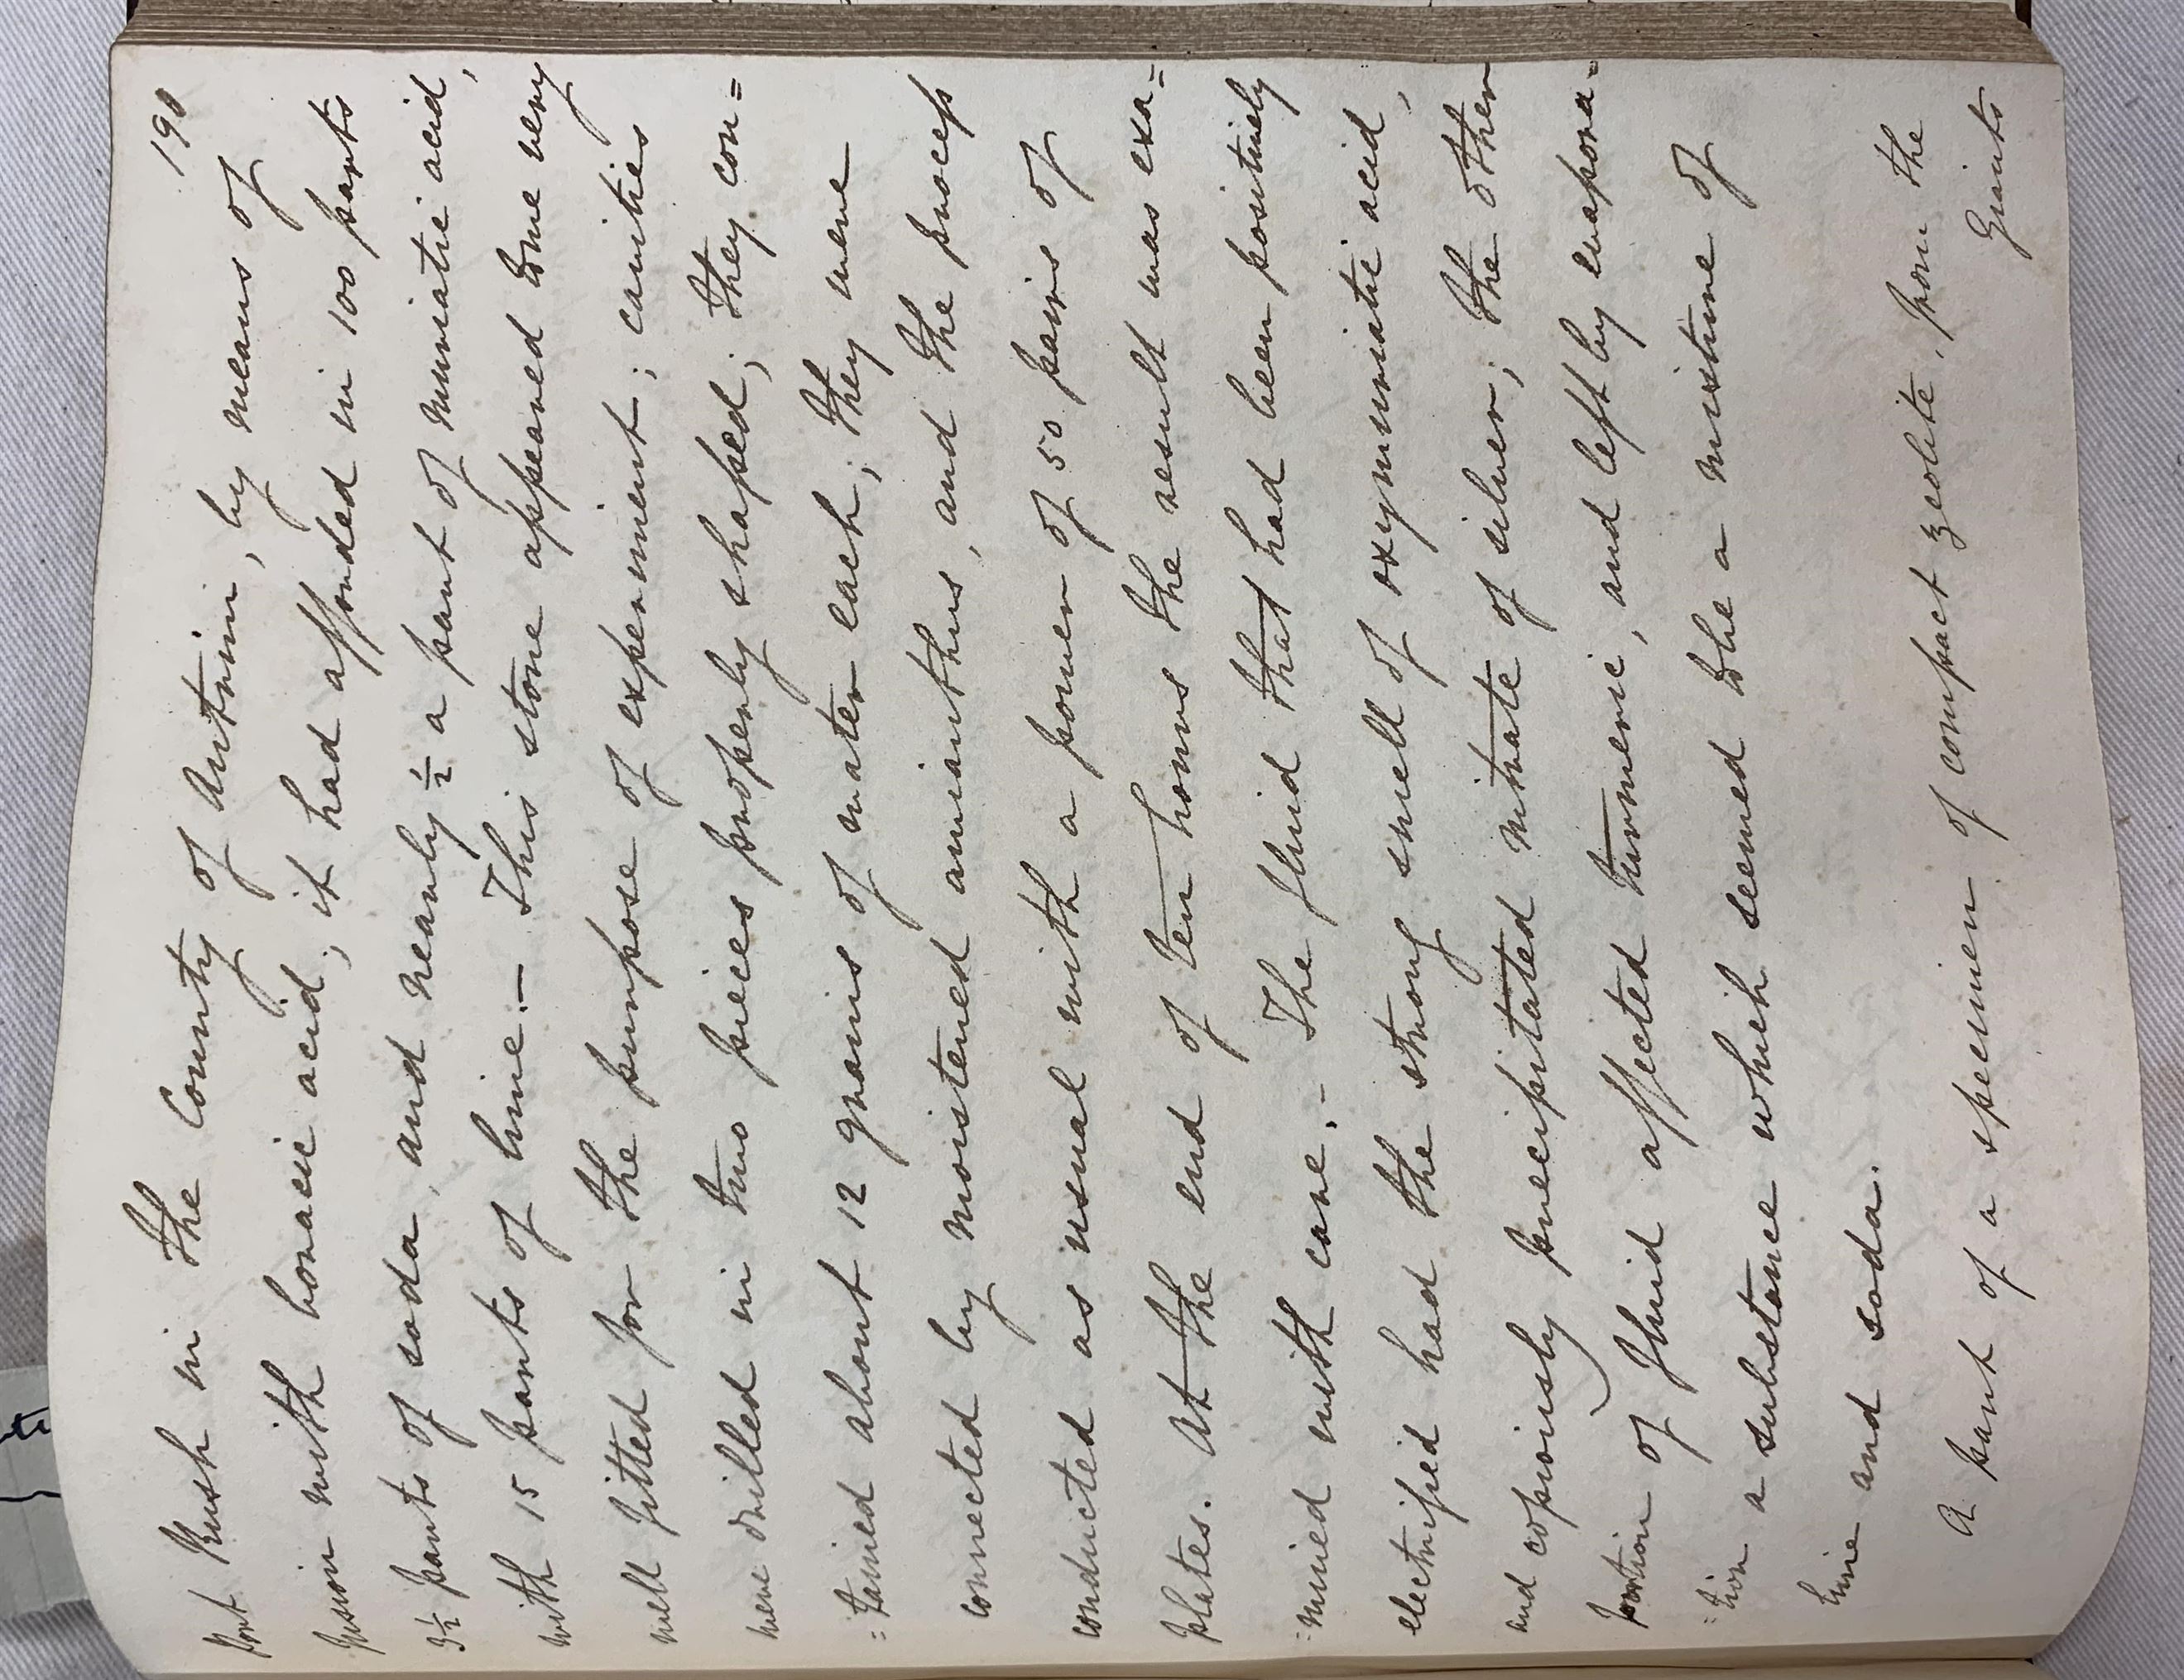 190
Port Rush in the County of Antrim, by means of
fusion with boracic acid; it had afforded in 100 parts
3½ parts of soda, and nearly ½ a part of muriatic acid,
with 15 parts of lime.— This stone appeared to me very
well fitted for the purpose of experiment; cavities
were drilled in two pieces properly shaped; they con=
=tained about 12 grains of water each; they were
connected by moistened amianthus, and the process
conducted as usual with a power of 50 pairs of
plates. At the end of ten hours the result was exa=
=mined with care.- The fluid that had been positively
electrified had the strong smell of oxymuriatic acid,
and copiously precipitated nitrate of silver; the other
portion of fluid affected turmeric, and left by evapora=
=tion a substance which seemed to be a mixture of
lime and soda.
A part of a specimen of compact zeolite, from the
Giants